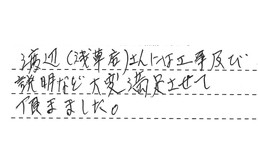 渡辺(浅草店)さんには工事及び
説明など大変満足させて
頂ました。